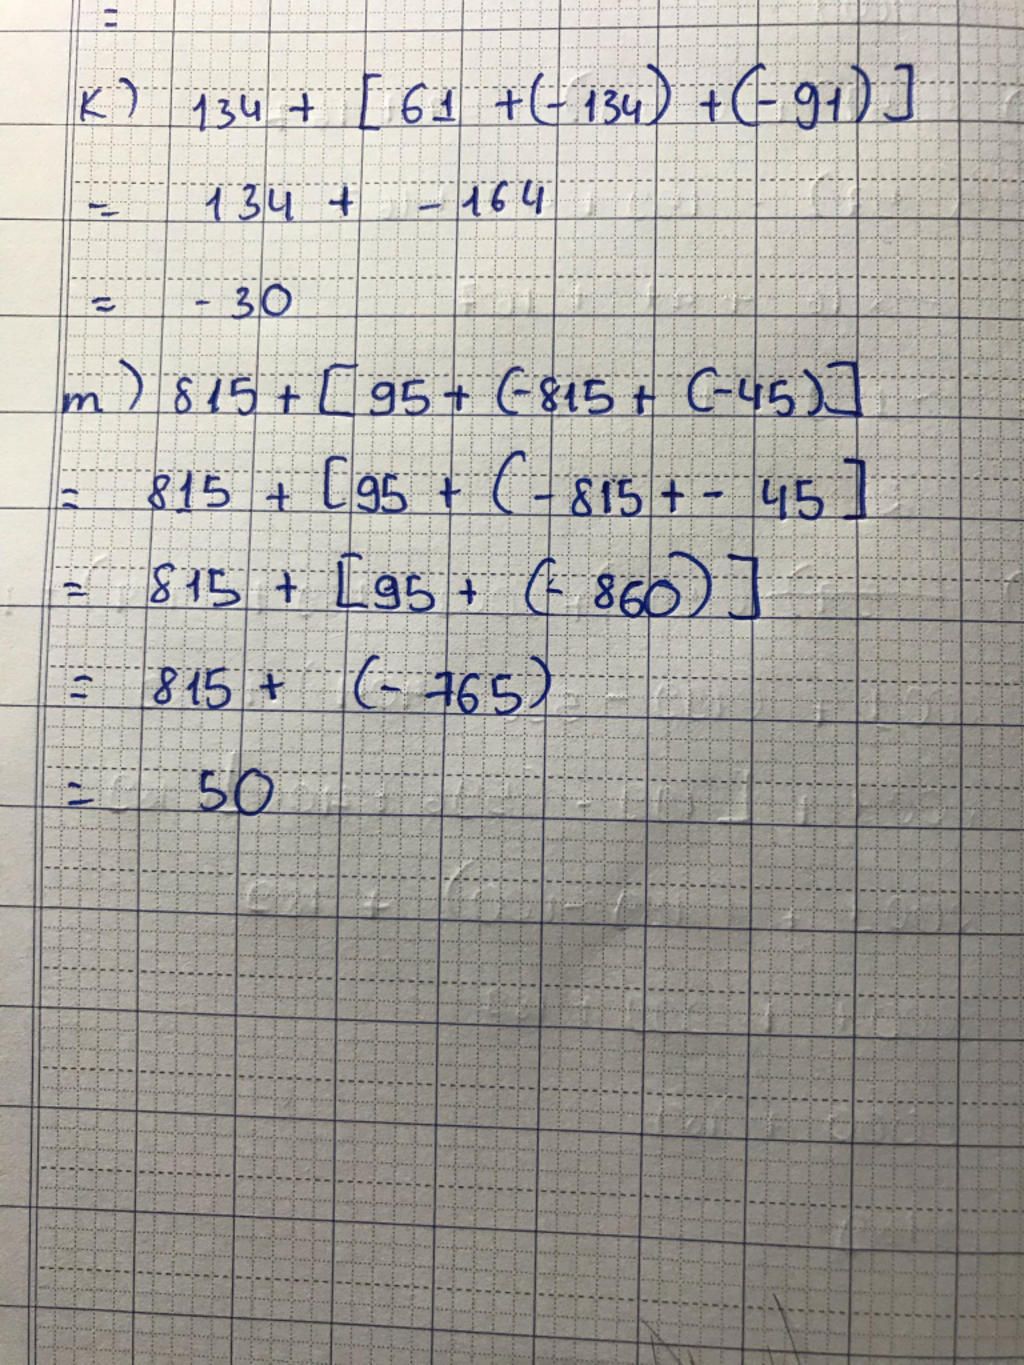 =
K) 134 + [ 61 +(-134) +(-91)]
= 134 + -164
= -30
m) 815 + [ 95 + (-815 + (-45)]
= 815 + [95 + (-815 + - 45]
= 815 + [95 + (- 860)]
= 815 + (- 765)
= 50